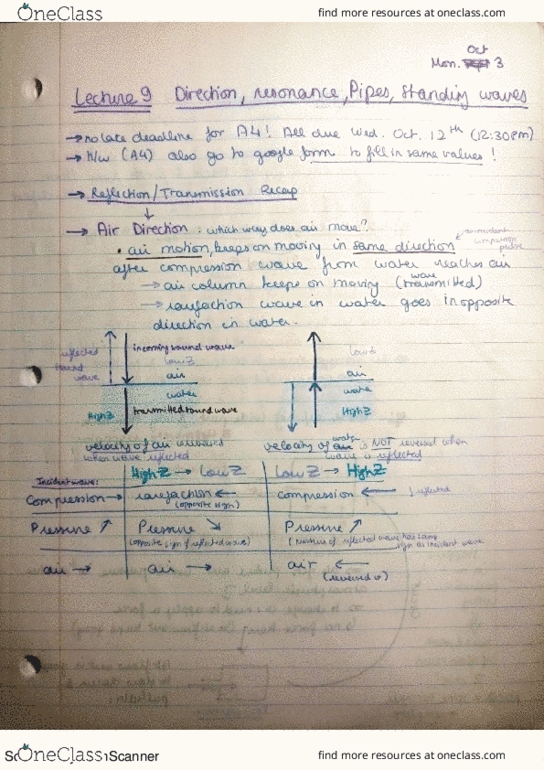 OneClass find more resources at oneclass.com
Oct
Mon. 3
Lecture 9 Direction, resonance, Pipes, Standing waves
→ no late deadline for A4! All due Wed. Oct. 12th (12:30pm)
→ H/w (A4) also go to google form to fill in some values!
→ Reflection/Transmission Recap
→ Air Direction : which way does air move?
• air motion, keeps on moving in same direction
after compression wave from water reaches air
→ air column keeps on moving (transmitted)
wave
→ rarefaction wave in water goes in opposite
direction in water.
reflected
sound
wave
incoming sound wave
low Z
air
water
High Z
transmitted sound wave
low Z
air
water
High Z
velocity of air
when wave reflected
velocity of water is NOT reversed when
wave is reflected
Incident wave:
High Z → Low Z
Low Z → High Z
Compression →
rarefaction ←
(opposite sign)
compression ←
reflected
Pressure ↗
Pressure ↘
(opposite sign of reflected wave)
Pressure ↗
(pressure of reflected wave has same
sign as incident wave
air →
air →
air ←
(reversed v)
OneClass Scanner find more resources at oneclass.com